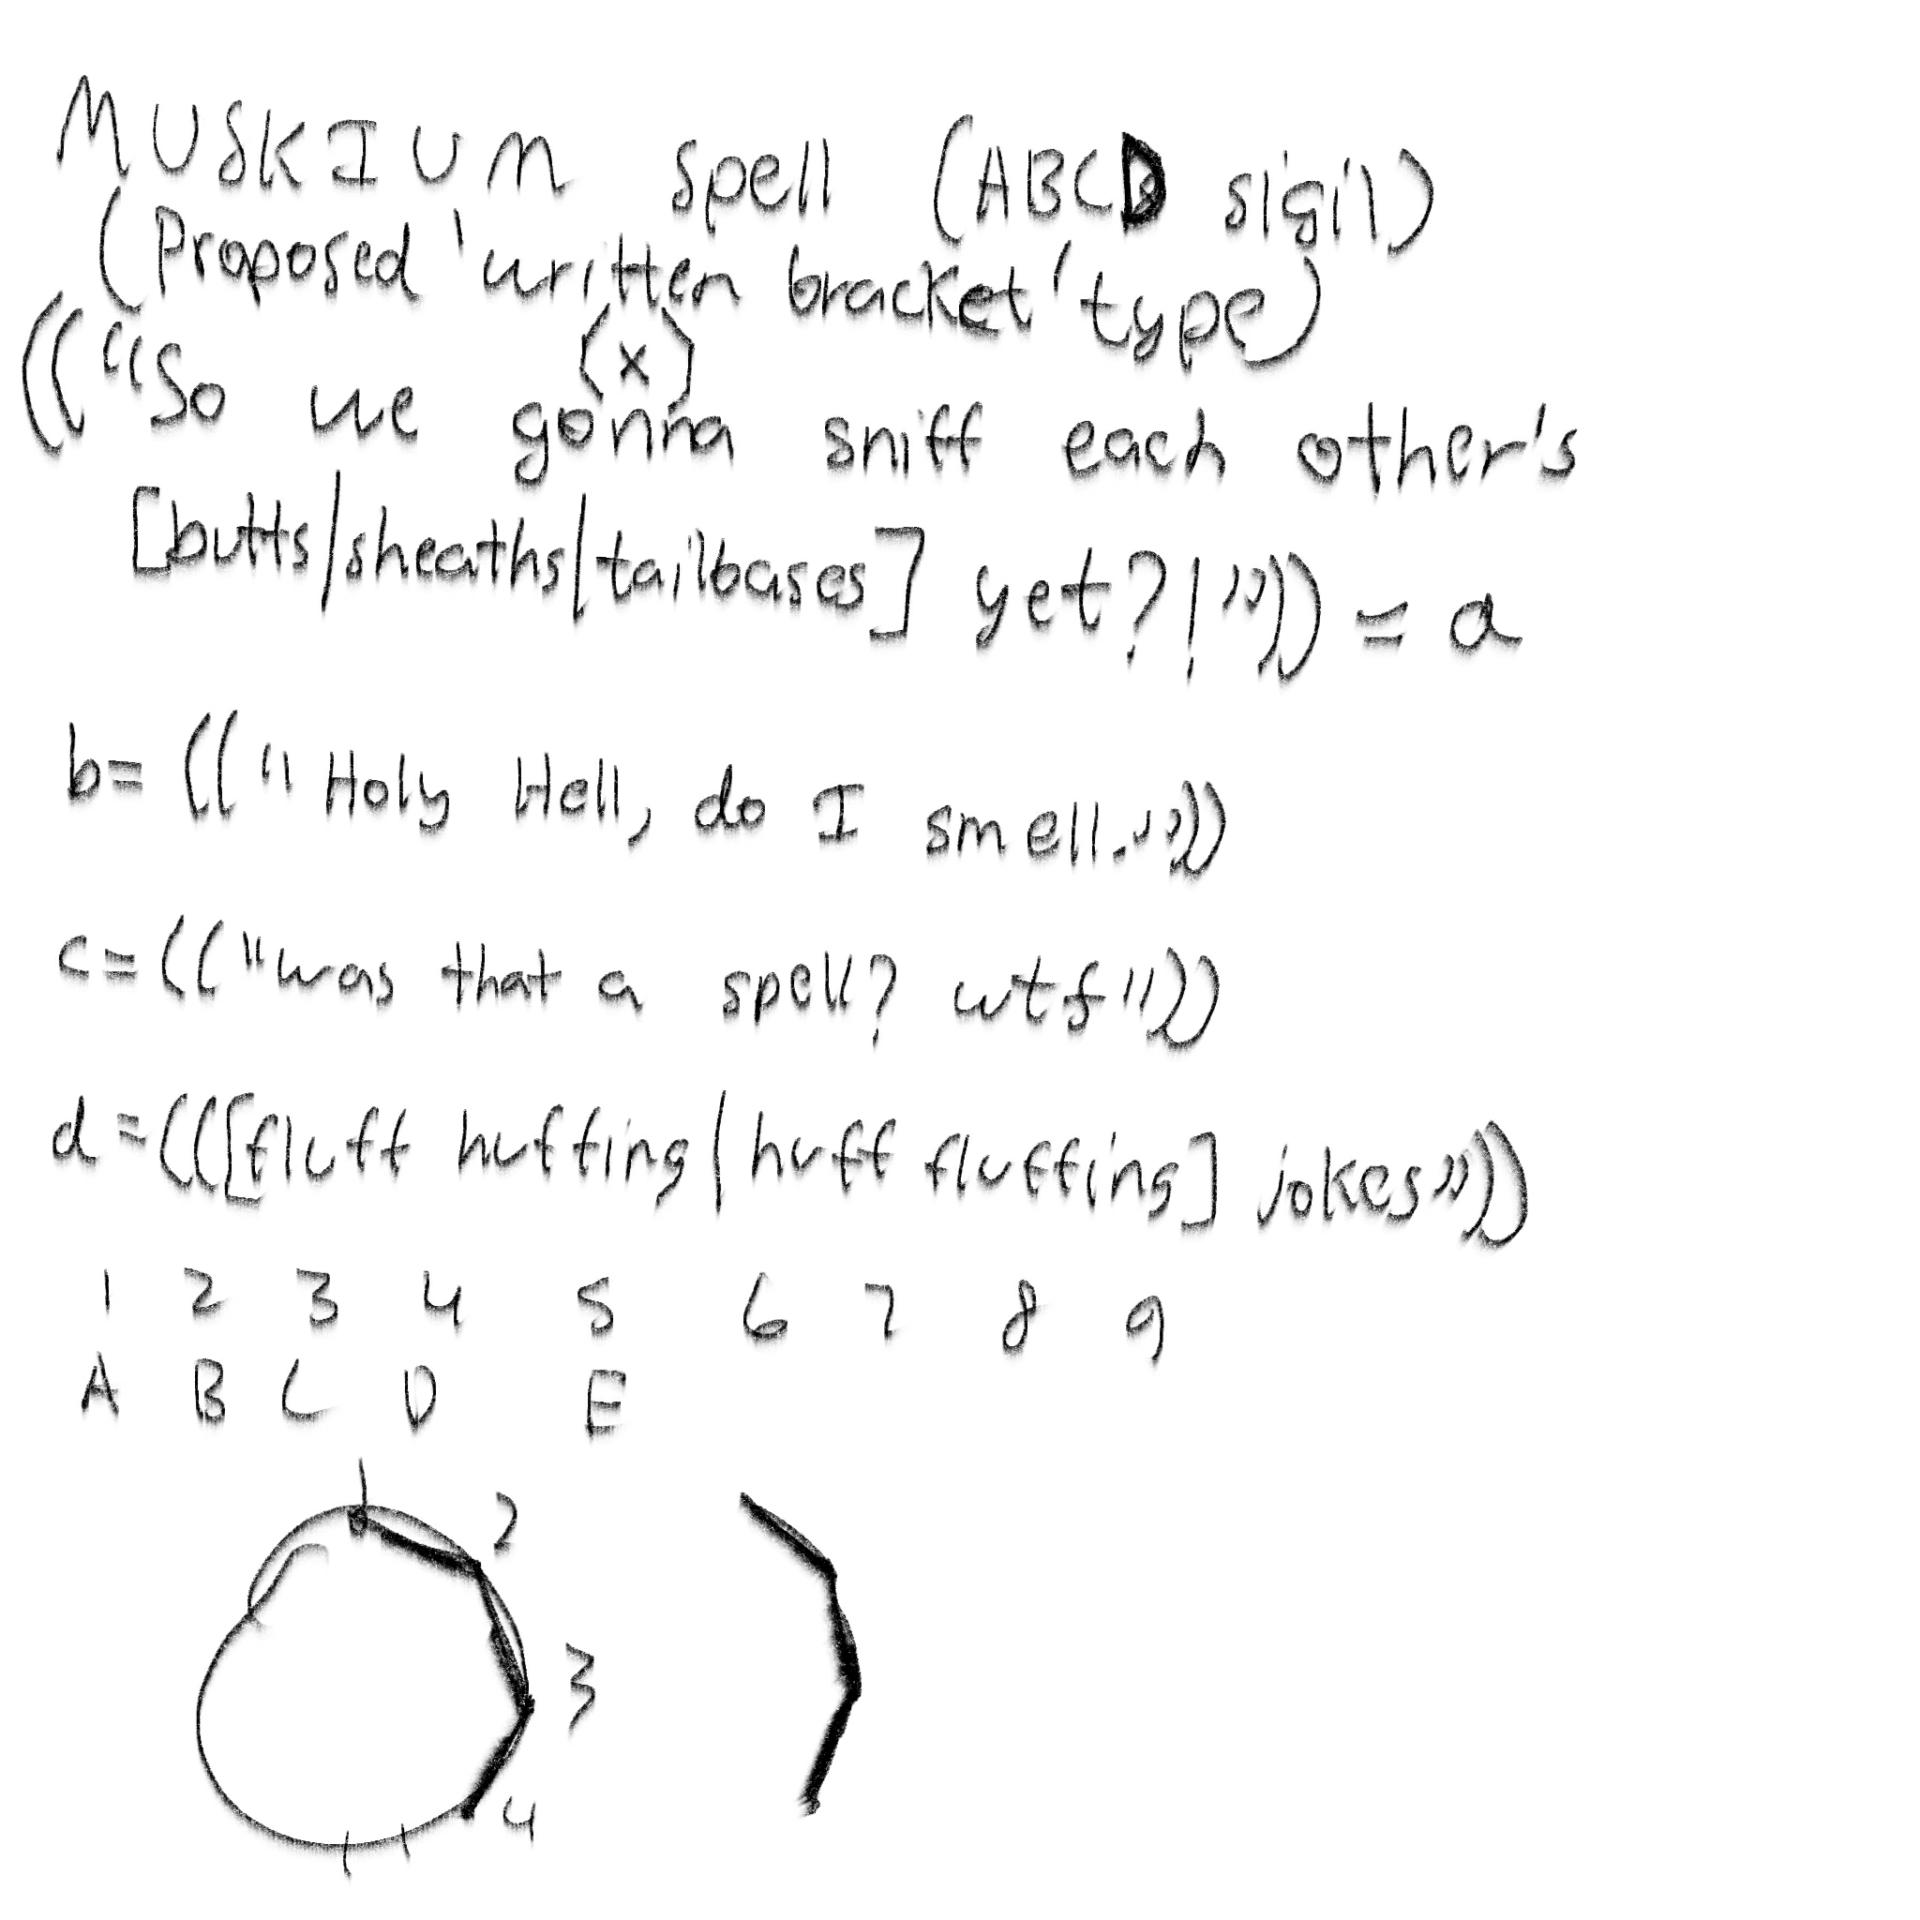 MUSKIUM spell (ABCD sigil)
(Proposed 'written bracket' type)
(x)
((““So we gonna sniff each other's
[butts/sheaths/tailbases] yet?!””)) = a
b= ((" Holy Hell, do I smell.”))
c=(("was that a spell? wtf"))
d=(([fluff huffing/huff fluffing] jokes”))
1 2 3 4 5 6 7 8 9
A B C D E
1
2
3
4